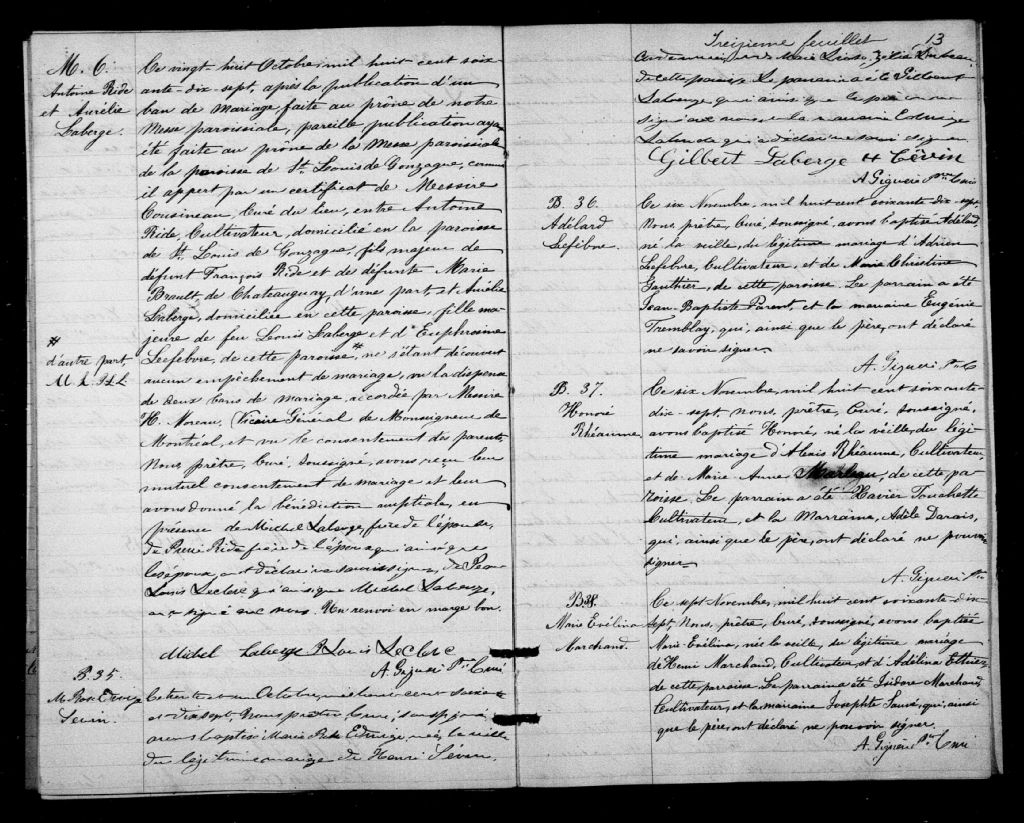 M. 6.
Antoine Ride
et Aurélie
Laberge.
Ce vingt-huit Octobre, mil huit cent soix
ante-dix-sept, après la publication d'un
ban de mariage, faite au prône de notre
Messe paroissiale, pareille publication ayant
été faite au prône de la Messe paroissiale
de la paroisse de St. Louis de Gonzague, comme
il appert par un certificat de Messire
Cousineau, Curé du lieu, entre Antoine
Ride, Cultivateur, domicilié en la paroisse
de St. Louis de Gonzague, fils majeur de
défunt François Ride et de défunte Marie
Brault, de Chateauguay, d'une part, et Aurélie
Laberge, domiciliée en cette paroisse, fille ma-
jeure de feu Léonis Laberge et d'Euphrosine
Leefebvre, de cette paroisse, # ne s'étant découvert
aucun empêchement de mariage, vu la dispense
de deux bans de mariage, accordée par Messire
H. Moreau, Vicaire Général de Monseigneur de
Montréal, et vu le consentement des parents,
Nous, prêtre, Curé, soussigné, avons reçu leur
mutuel consentement de mariage et leur
avons donné la bénédiction nuptiale, en
présence de Michel Laberge, frère de l'épouse,
de Pierre Ride frère de l'époux qui ainsi que
les époux, ont déclaré ne savoir signer, de
Louis Leclerc qui a signé Michel Laberge,
a signé avec nous. Un renvoi en marge bon.
#
d'autre part,
M. L. P.L.L.
Michel Laberge P Louis Leclerc
A. Giguère Ptre Curé
B. 35.
Sévin.
Octobre, mil huit cent soixante
et dix sept, Nous prêtre Curé, soussigné
avons baptisé Marie Rose Edwige, née la veille
du légitime mariage de Henri Sévin,
Treizième feuillet 13
de cette paroisse. Le parrain a été Gilbert
Laberge qui ainsi que le père ont
signé avec nous et la marraine Edwige
Lalande qui a déclaré ne savoir signer.
Gilbert Laberge H Cévin
A. Giguère Ptre Curé
B. 36.
Adélard
Lefebvre.
Ce six Novembre, mil huit cent soixante dix-sept
Nous prêtre, Curé, soussigné, avons baptisé Adélard,
né la veille, du légitime mariage d'Adrien
Leefebvre, Cultivateur, et de Marie Christine
Gauthier, de cette paroisse. Le parrain a été
Jean-Baptiste Parent, et la marraine Eugénie
Tremblay, qui, ainsi que le père, ont déclaré
ne savoir signer.
A. Giguère Ptre C
B. 37.
Honoré
Rhéaume.
Ce six Novembre, mil huit cent soixante-
dix-sept, nous, prêtre, Curé, soussigné,
avons baptisé Honoré, né la veille, du légi-
time mariage d'Alexis Rhéaume, Cultivateur,
et de Marie Anne Marleau, de cette pa-
roisse. Le parrain a été Xavier Touchette
Cultivateur, et la Marraine, Adèle Darais,
qui, ainsi que le père, ont déclaré ne pouvoir
signer.
A. Giguère Ptre
B. 38.
Marie Evélina
Marchand.
Ce sept Novembre, mil huit cent soixante-dix-
sept, Nous, prêtre, Curé, soussigné, avons baptisé
Marie Evélina, née la veille, du légitime mariage
de Henri Marchand, Cultivateur, et d'Adélina
de cette paroisse. Le parrain a été Isidore Marchand
Cultivateur, et la marraine Josephte Sauvé, qui, ainsi
que le père, ont déclaré ne pouvoir signer.
A. Giguère Ptre Curé